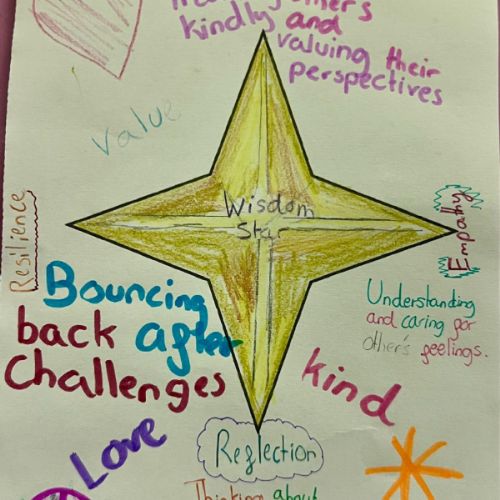 kindly and
valuing their
perspectives
Value
Wisdom
Star
Resilience
Empathy
Bouncing
back after
challenges
Understanding
and caring for
other's feelings.
kind
Love
Reflection
Thinking about